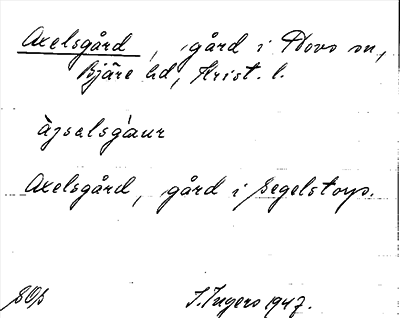 Axelsgård, gård i Hovs sn,
Bjäre hd, Krist. l.
àjsəlsgàur
Axelsgård, gård i Segelstorp.
SOß
I. Ingers 1947.